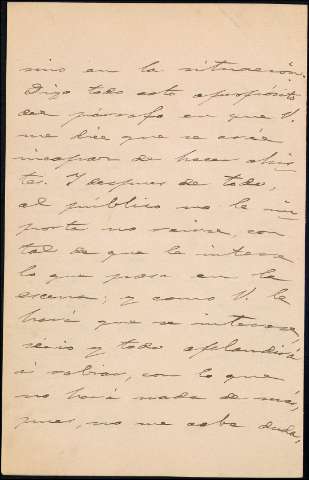 sino en la situación.
Digo todo esto a propósito
del párrafo en que V.
me dice que se cree
incapaz de hacer chis-
tes. Y despues de todo,
al público no le im
porta no reirse, con
tal de que le interese
lo que pasa en la
escena; y como V. le
hará que se interese,
sério y todo aplaudirá
á rabiar, con lo que
no hará nada de más,
pues, no me cabe duda,